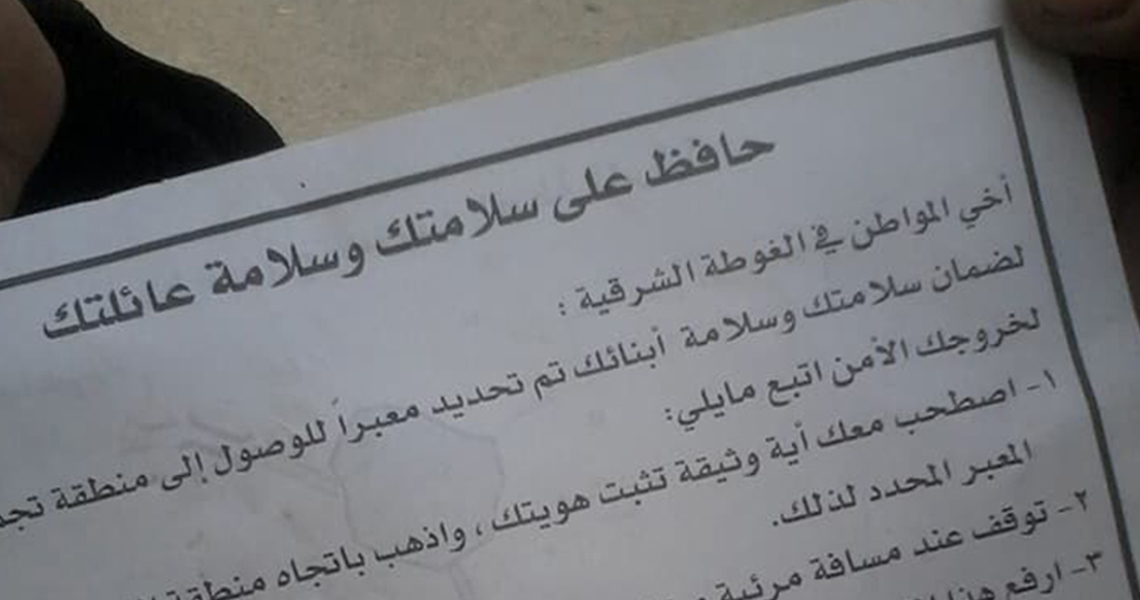 حافظ على سلامتك وسلامة عائلتك
أخي المواطن في الغوطة الشرقية :
لضمان سلامتك وسلامة أبنائك تم تحديد معبراً للوصول إلى منطقة
لخروجك الأمن اتبع مايلي:
١- اصطحب معك أية وثيقة تثبت هويتك ، واذهب باتجاه منطقة
المعبر المحدد لذلك.
٢- توقف عند مسافة مرئية
٣- ارفع هذا